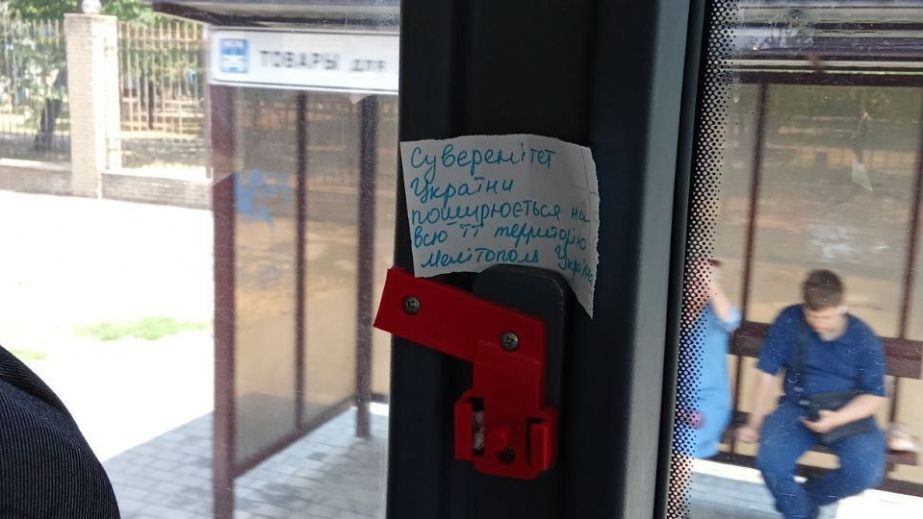 ТОВАРЫ ДЛЯ
Суверенітет
України
поширюється на
всю її територію
Мелітополь Україна